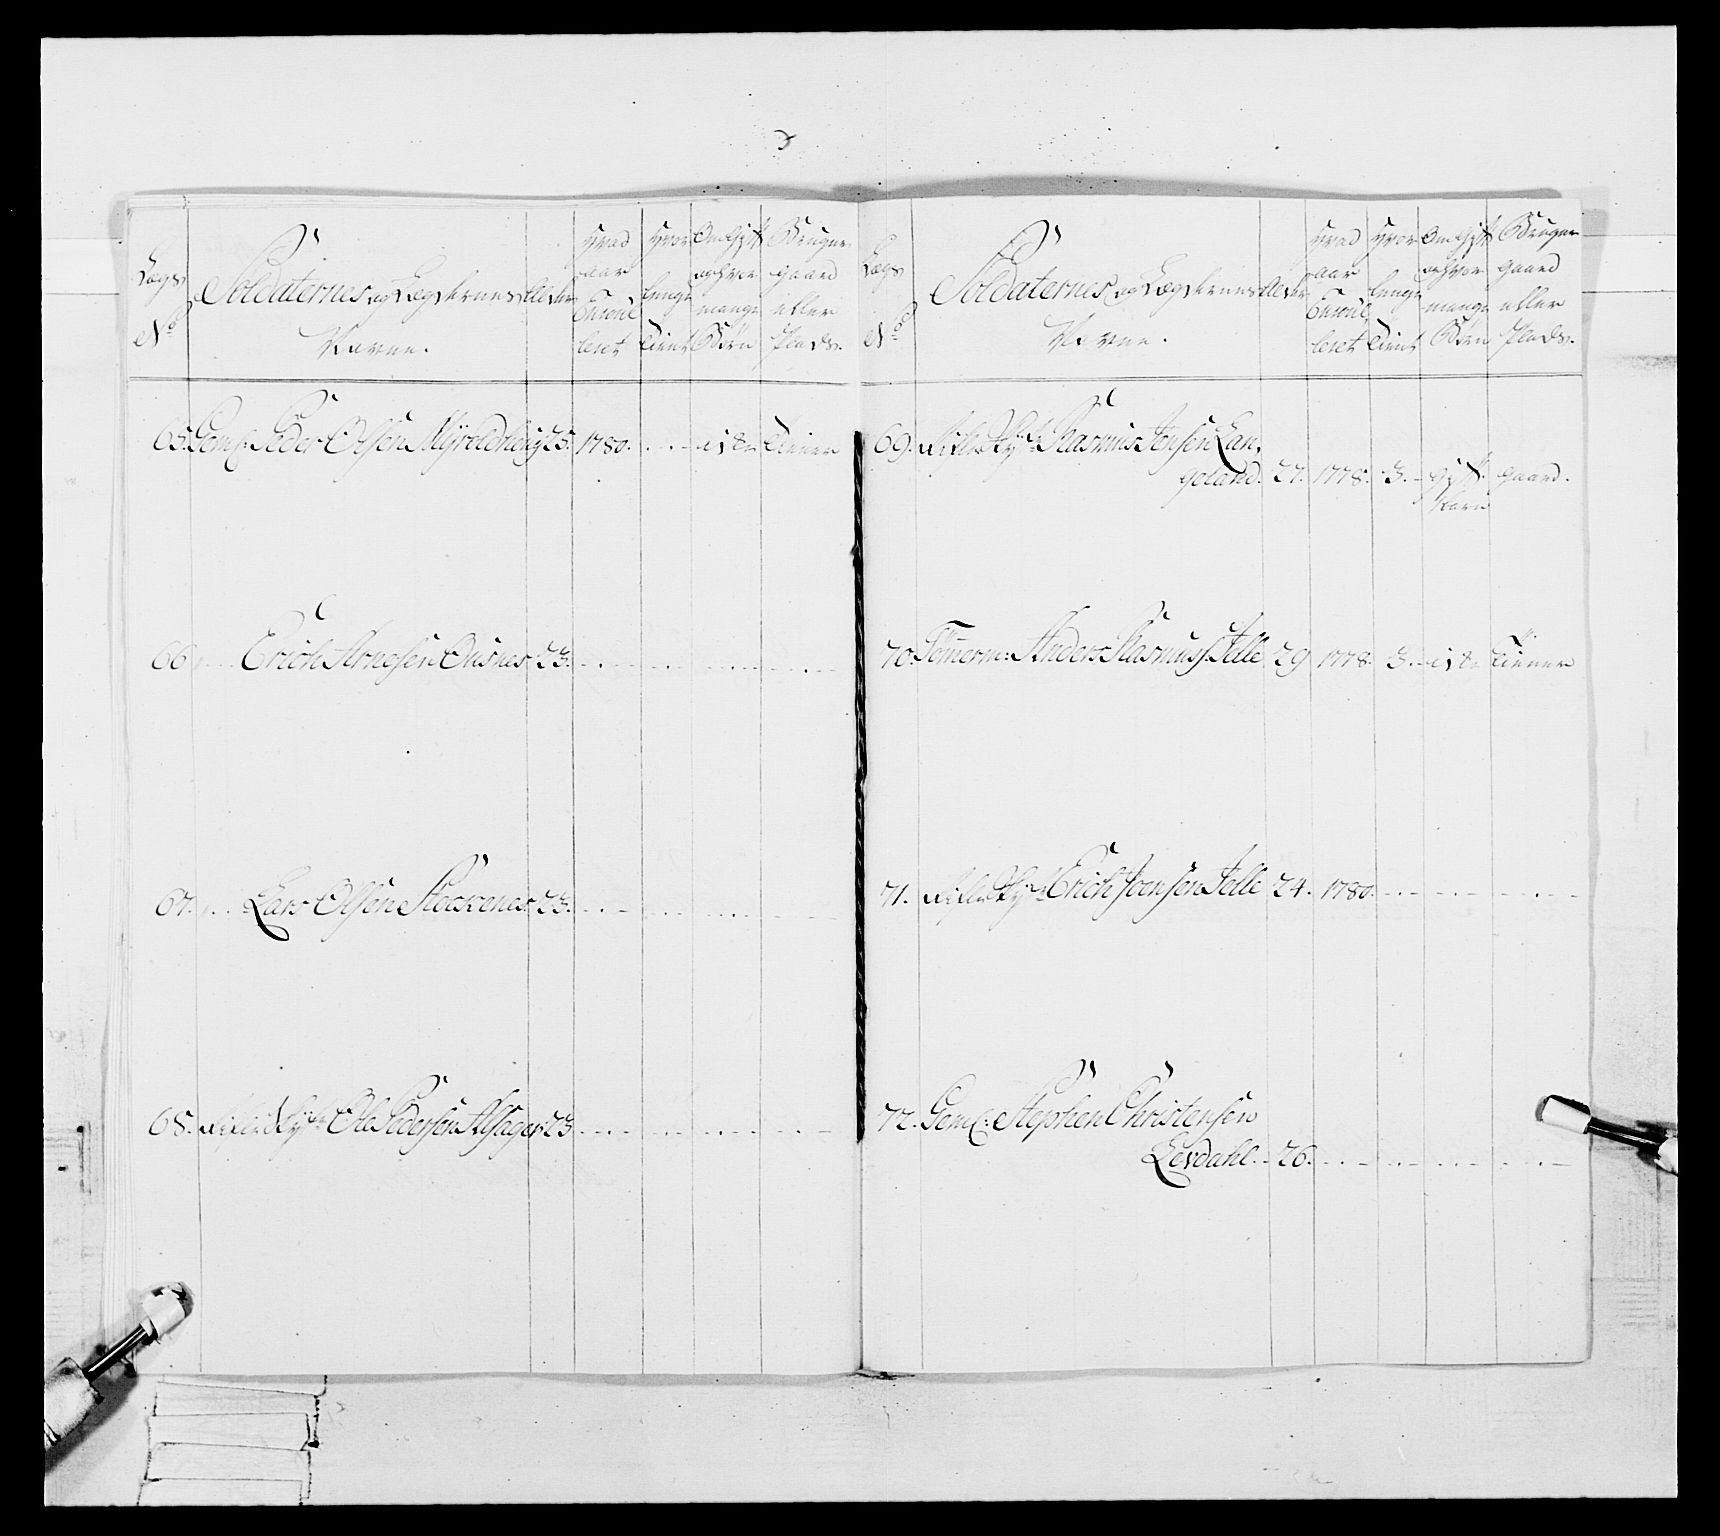 Lægs
No
Soldaternes og Lægdernes
Navne.
Alder
Hvad
aar
Enroul
leret
Hvor
lenge
Tient
Om Gift
og hvor
mange
Børn
Bruger
gaard
eller
Plads.
65. Gem: Peder Olsen 25. 1780. . . - ej - Tiener
66 . . . Erich Arnesen Ousnes 23.
67. . . . Lars Olsen 23.
68. Ole Pedersen Alsager 23
Lægs
No
Soldaternes og Lægdernes
Navne.
Alder
Hvad
aar
Enroul
leret
Hvor
lenge
Tient
Om Gift
og hvor
mange
Børn
Bruger
gaard
eller
Plads.
69. Rasmus Jensen Lan,
geland. 27. 1778. 3. - gift gaard.
Barn
70. Tömerm: Anders Rasmus: Jelle 29 1778. 3. - ej - Tiener
71. Erich Joensen Jelle 24. 1780.
72. Gem: Stephen Christensen
Levdahl. - 26.